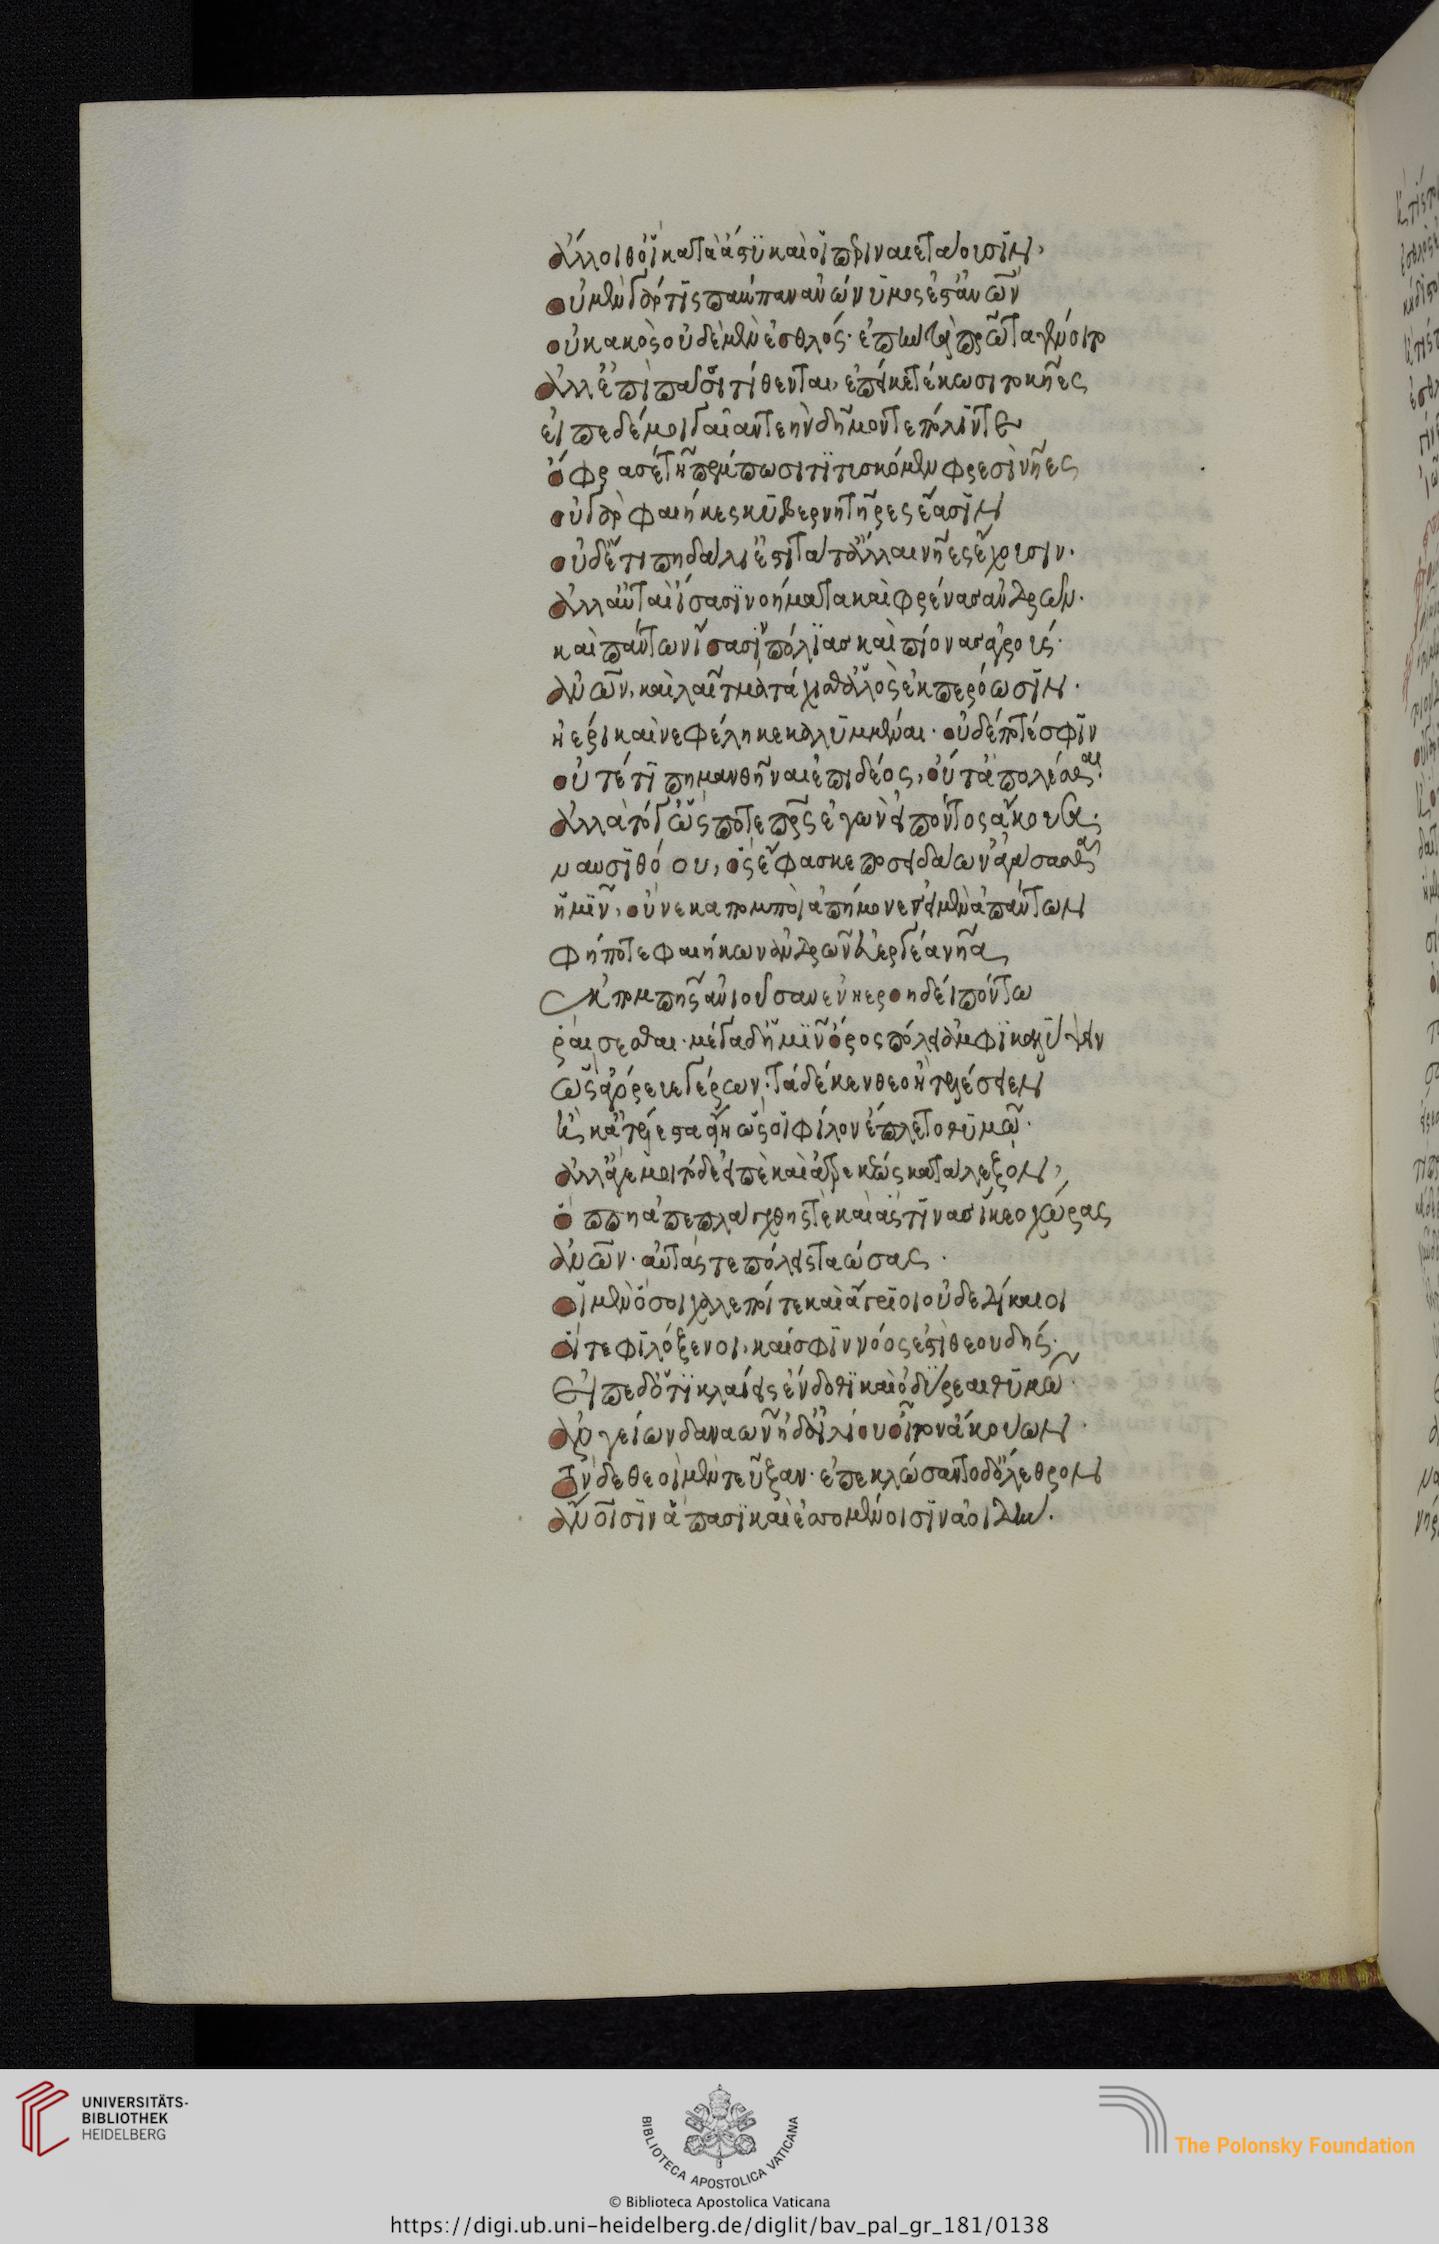 ἄλλοι θ' οἳ κατὰ ἄστυ καὶ οἳ περιναιετάουσιν,
οὐ μὲν γάρ τις πάμπαν ἀνώνυμος ἐστ' ἀνθρώπων
οὐ κακὸς οὐδὲ μὲν ἐσθλός· ἐπὴν τὰ πρῶτα γένοιτο
ἀλλ' ἐπὶ πᾶσι τίθενται, ἐπεί κε τέκωσι τοκῆες
εἰπὲ δέ μοι γαῖάν τε ἠν δῆμόν τε πόλιν τε
ὄφρα σέ τῇ πέμπωσι τιτυσκόμεναι φρεσὶ νῆες
οὐ γὰρ φαιήκεσσι κυβερνητῆρες ἔασιν
οὐδέ τι πηδάλι' ἐστὶ τά τ' ἄλλαι νῆες ἔχουσιν.
ἀλλ' αὐταὶ ἴσασι νοήματα καὶ φρένας ἀνδρῶν.
καὶ πάντων ἴσασιν πόλιας καὶ πίονας ἀγρούς.
ἀνθρώπων, καὶ λαῖτμα τάχισθ' ἁλὸς ἐκπερόωσιν.
ἠέρι καὶ νεφέλῃ κεκαλυμμέναι. οὐδέ ποτέ σφιν
οὔτέ τι πημανθῆναι ἔπι δέος, οὔτ' ἀπολέσθαι.
ἀλλὰ τόδ' ὥς ποτε πατρὸς ἐγὼν εἰπόντος ἄκουσα.
ναυσιθόου, ὃς ἔφασκε ποσειδάων' ἀγάσασθαι
ἡμῖν, οὕνεκα πομποὶ ἀπήμονες εἰμὲν ἁπάντων
φῆ ποτε φαιήκων ἀνδρῶν εὐεργέα νῆα
ἐκ πομπῆς ἀνιοῦσαν ἐν ἠεροειδέι πόντω
ῥαίσεσθαι. μέγα δ' ἡμῖν ὄρος πόλει ἀμφικαλύψειν
ὣς ἀγόρευε γέρων. τὰ δέ κεν θεὸς ἢ τελέσειεν
ἤ κ' ἀτέλεστα εἴη ὥς οἱ φίλον ἔπλετο θυμῶ.
ἀλλ' ἄγε μοι τόδε εἰπὲ καὶ ἀτρεκέως κατάλεξον,
ὅππη ἀπεπλάγχθης τὲ καὶ ἅς τινας ἵκεο χώρας
ἀνθρώπων. αὐτάς τε πόλεις τ' ἀώσας.
οἳ μὲν ὅσοι χαλεποί τε καὶ ἄγριοι οὐδὲ δίκαιοι
οἵ τε φιλόξενοι, καί σφιν νόος ἐστὶ θεουδής.
εἰπὲ δ' ὅτι κλαίεις ἔνδοθι καὶ ὀδύρεαι θυμῶ.
ἀργείων δαναῶν ἠδ' ἰλίου οἶτον ἀκούων.
τὸν δὲ θεοὶ μὲν τεῦξαν. ἐπεκλώσαντο δ' ὄλεθρον
ἀνθρώποισιν ἅπασι καὶ ἐσσομένοισιν ἀοιδήν.
UNIVERSITÄTS-
BIBLIOTHEK
HEIDELBERG
BIBLIOTECA APOSTOLICA VATICANA
The Polonsky Foundation
© Biblioteca Apostolica Vaticana
https://digi.ub.uni-heidelberg.de/diglit/bav_pal_gr_181/0138